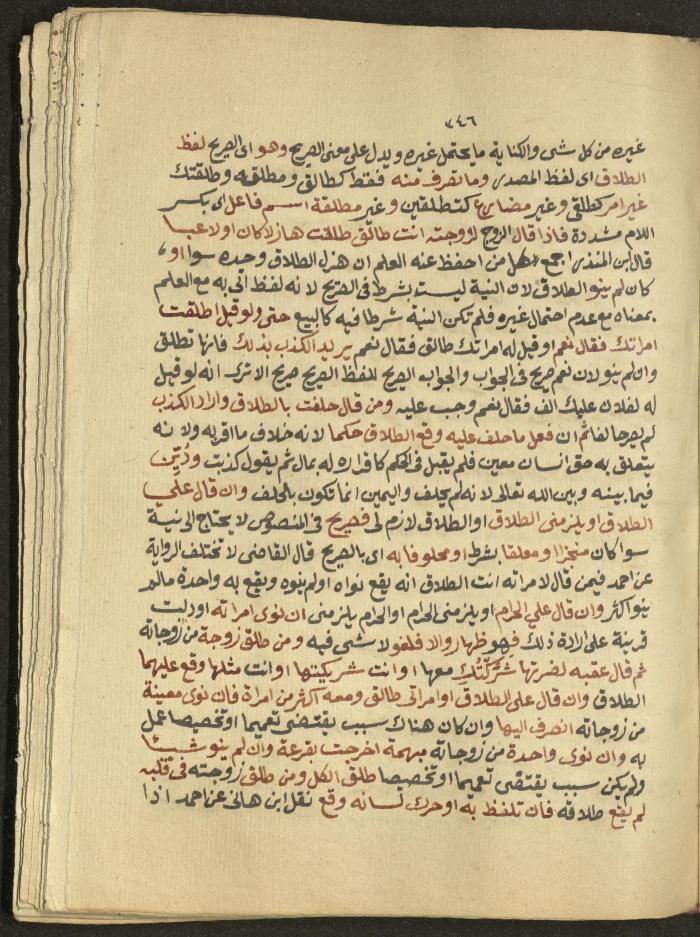 ٣٤٦
غيره من كل شى والكناية ما يحتمل غيره ويدل على معنى الصريح وهو اى الصريح لفظ
الطلاق اى لفظ المصدر وما تصرف منه فقط كطالق ومطلقه وطلقتك
غير امر كطلقى وغير مضارع كتطلقين وغير مطلقة اسم فاعل اى بكسر
اللام مشددة فاذا قال الزوج لزوجته انت طالق طلقت هازلا كان او لاعبا
قال ابن المنذر اجمع كل من احفظ عنه العلم ان هزل الطلاق وجده سوا او
كان لم ينو الطلاق لان النية ليست بشرط فى الصريح لانه لفظ اتى به مع العلم
بمعناه مع عدم احتمال غيره فلم تكن النية شرطا فيه كالبيع حتى ولو قيل اطلقت
امراتك فقال نعم او قيل له امراتك طالق فقال نعم يريد الكذب بذلك فانها تطلق
وان لم ينو لان نعم صريح فى الجواب والجواب الصريح للفظ الصريح صريح الا ترى انه لو قيل
له لفلان عليك الف فقال نعم وجب عليه ومن قال حلفت بالطلاق واراد الكذب
لم يصر حالفا ثم ان فعل ما حلف عليه وقع الطلاق حكما لانه خلاف ما اقر به ولانه
يتعلق به حق انسان معين فلم يقبل فى الحكم كاقراره له بمال ثم يقول كذبت ودُيِّن
فيما بينه وبين الله تعالى لانه لم يحلف واليمين انما تكون بالحلف وان قال علي
الطلاق او يلزمنى الطلاق او الطلاق لازم لى فصريح فى المنصوص لا يحتاج الى نية
سوا كان منجزا او معلقا بشرط او محلوفا به اى بالصريح قال القاضى لا تختلف الرواية
عن احمد فيمن قال لامراته انت الطلاق انه يقع نواه او لم ينوه ويقع به واحدة ما لم
ينو اكثر وان قال علي الحرام او يلزمنى الحرام او الحرام يلزمنى ان نوى امراته او دلت
قرينة على ارادة ذلك فهو ظهار والا فلغو لا شى فيه ومن طلق زوجة من زوجاته
ثم قال عقبه لضرتها شَرَّكْتُك معها او انت شريكتها او انت مثلها وقع عليهما
الطلاق وان قال على الطلاق او امراتى طالق ومعه اكثر من امراة فان نوى معينة
من زوجاته انصرف اليها وان كان هناك سبب يقتضى تعميما او تخصيصا عمل
به وان نوى واحدة من زوجاته مبهمة اخرجت بقرعة وان لم ينو شيئا
ولم يكن سبب يقتضى تعميما او تخصيصا طلق الكل ومن طلق زوجته فى قلبه
لم يقع طلاقه فان تلفظ به او حرك لسانه وقع نقل ابن هانى عن احمد اذا